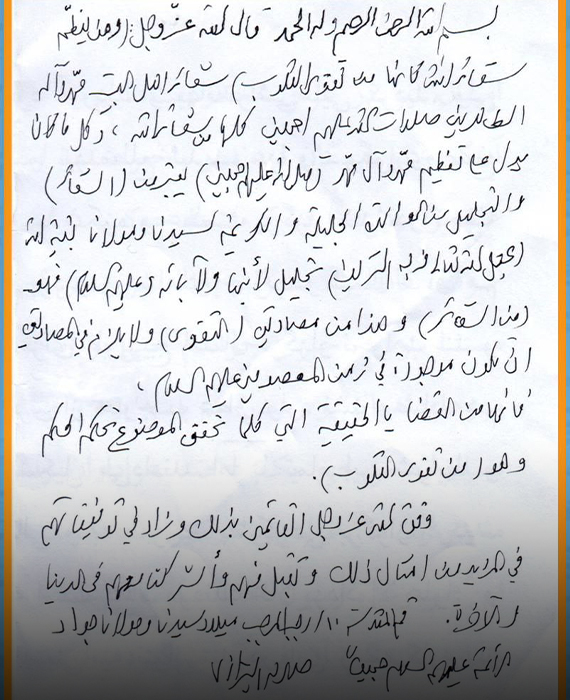 بسم الله الرحمن الرحيم وله الحمد قال الله عزّ وجل: (ومن يعظّم
شعائر الله فإنها من تقوى القلوب) شعائر أهل البيت محمد وآله
الطاهرين صلوات الله عليهم أجمعين كلها من شعائر الله، وكل ما كان
يدل على تعظيم محمد وآل محمد (صلى الله عليهم أجمعين) يعتبر من (الشعائر)
والتجليل من الوالدة الجليلة والكريمة لسيدنا ومولانا بقية الله
(عجل الله تعالى فرجه الشريف) تجليل لأبنها ولآبائه (عليهم السلام) فهو
(من الشعائر) وهذا من مصاديق (التقوى) ولا يلزم في المصاديق
ان تكون موجودة في زمن المعصومين عليهم السلام،
فإنها من القضايا الحقيقية التي كلما تحقق الموضوع تحكم الحكم
وهو (من تقوى القلوب).
وفق الله عز وجل القائمين بذلك وزاد في توفيقاتهم
في المزيد من امثال ذلك وتقبل منهم وأشركنا معهم في الدنيا
والآخرة. قم المقدسة ١٠/ رجب المرجب ميلاد سيدنا ومولانا جواد
الأئمة عليهم السلام جميعاً صادق الشيرازي